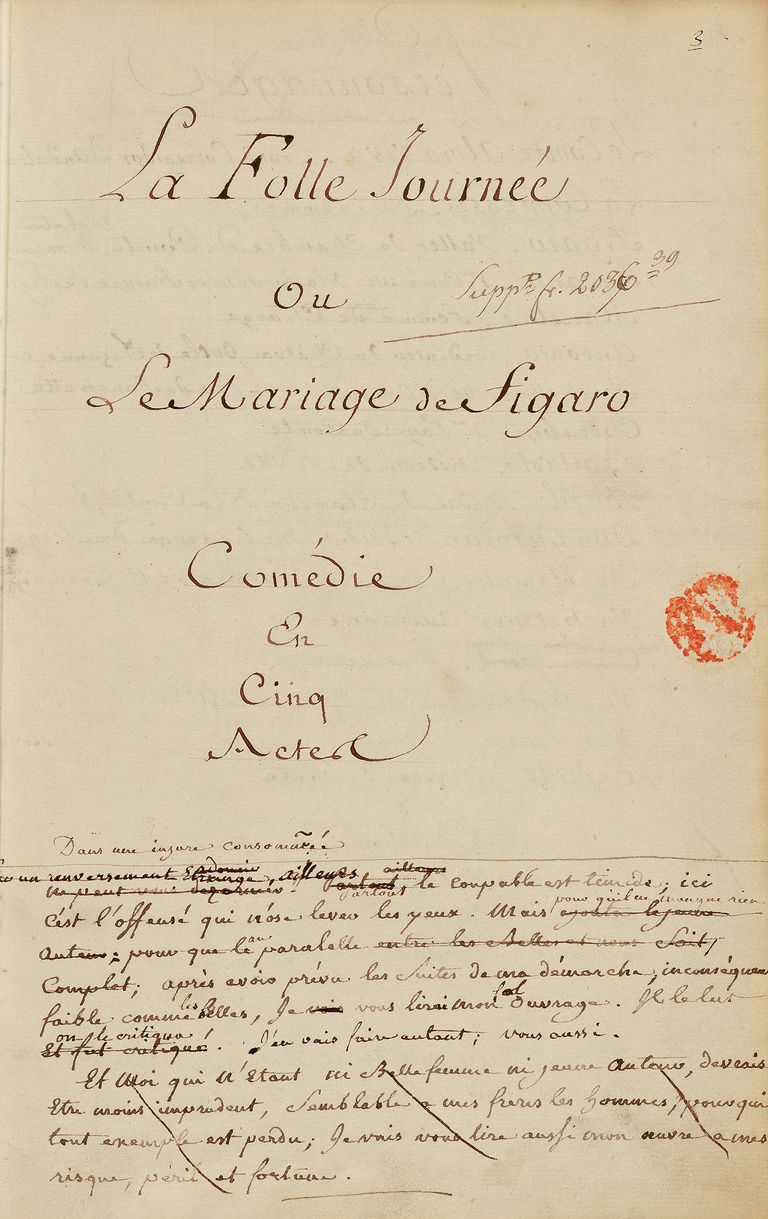 3
La Folle Journée
Ou
Supp. fr. 2036 39
Le Mariage de Figaro
Comédie
En
Cinq
Actes
Dans une injure consommée
un renversement ailleurs
ne peut partout le coupable est timide; ici
pour qu'il ne manque rien
c'est l'offensé qui n'ose lever les yeux. Mais ajouta le jeune
auteur; pour que le au paralelle entre les Belles et nous soit
Complet; après avoir prévu les suites de ma démarche, inconséquent
faible comme les Belles, Je vais vous lirai mon sol ouvrage. Il le lut
on le critiqua
Et fut critiqué. J'en vais faire autant; vous aussi.
Et Moi qui N'Etant ni Belle femme ni jeune auteur, devais
Etre moins imprudent, Semblable a mes freres les hommes, pour qui
tout exemple est perdu; Je vais vous lire aussi mon œuvre a mes
risque, péril et fortune.